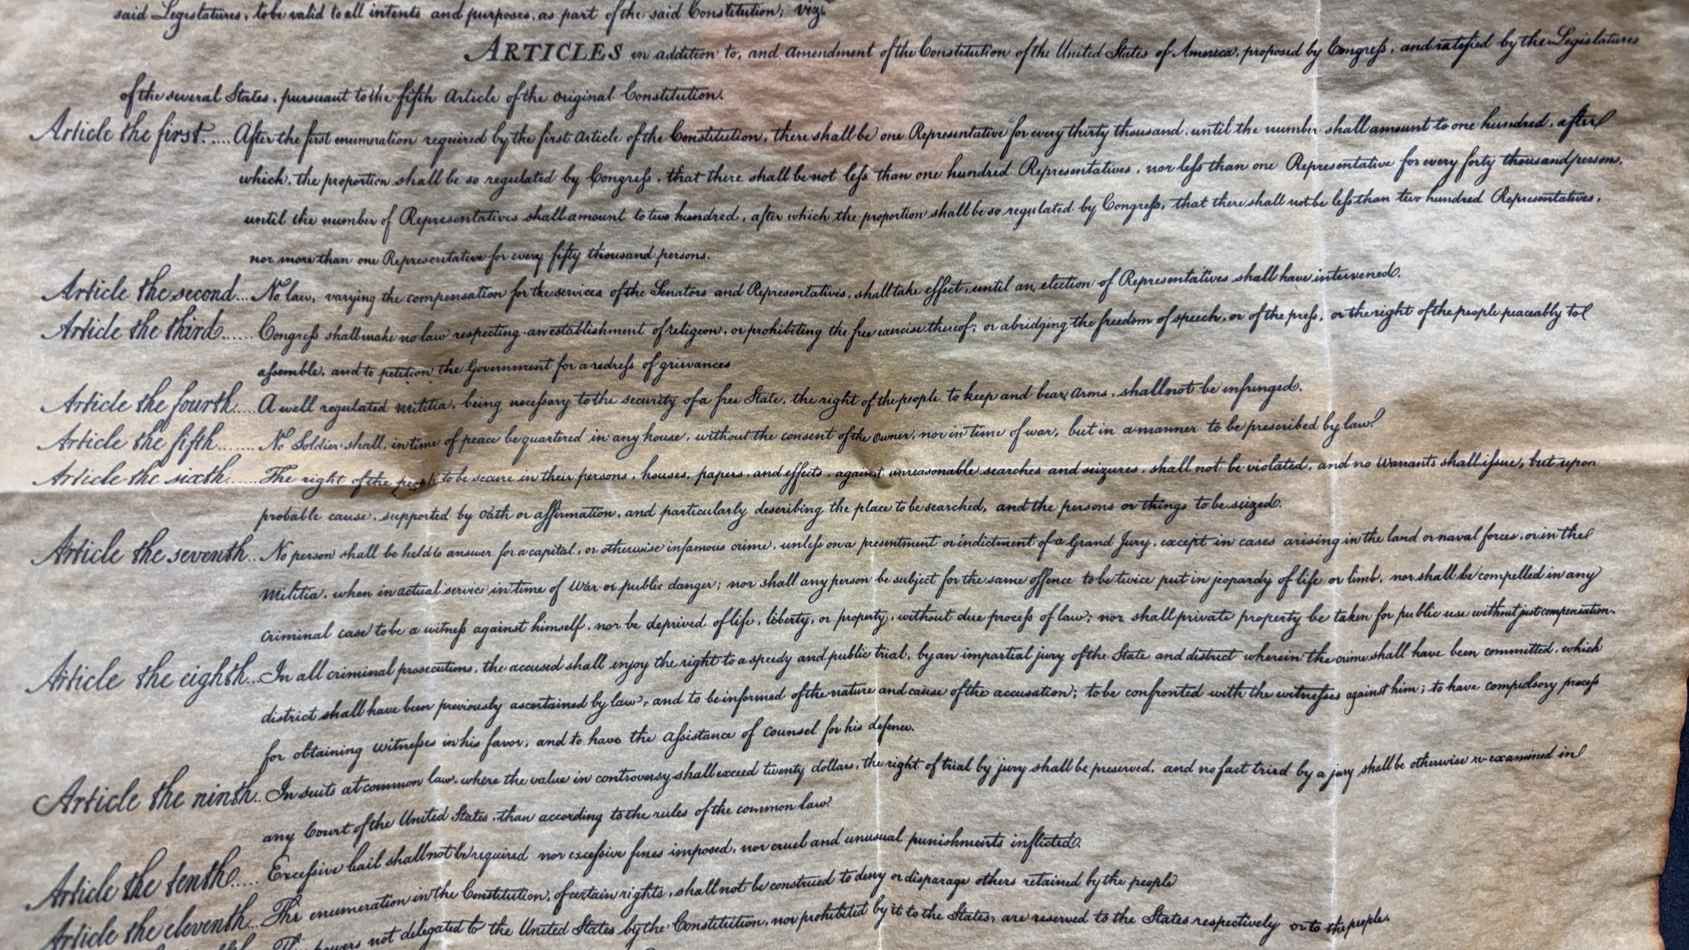 said Legislatures, to be valid to all intents and purposes, as part of the said Constitution; viz.
ARTICLES in addition to, and amendment of the Constitution of the United States of America, proposed by Congress, and ratified by the Legislatures
of the several States, pursuant to the fifth Article of the original Constitution.
Article the first..... After the first enumeration required by the first Article of the Constitution, there shall be one Representative for every thirty thousand, until the number shall amount to one hundred, after
which, the proportion shall be so regulated by Congress, that there shall be not less than one hundred Representatives, nor less than one Representative for every forty thousand persons,
until the number of Representatives shall amount to two hundred, after which the proportion shall be so regulated by Congress, that there shall not be less than two hundred Representatives,
nor more than one Representative for every fifty thousand persons.
Article the second... No law, varying the compensation for the services of the Senators and Representatives, shall take effect, until an election of Representatives shall have intervened.
Article the third...... Congress shall make no law respecting an establishment of religion, or prohibiting the free exercise thereof; or abridging the freedom of speech, or of the press, or the right of the people peaceably to
assemble, and to petition the Government for a redress of grievances
Article the fourth.... A well regulated Militia, being necessary to the security of a free State, the right of the people to keep and bear Arms, shall not be infringed.
Article the fifth....... No Soldier shall, in time of peace be quartered in any house, without the consent of the owner, nor in time of war, but in a manner to be prescribed by law.
Article the sixth...... The right of the people to be secure in their persons, houses, papers, and effects, against unreasonable searches and seizures, shall not be violated, and no Warrants shall issue, but upon
probable cause, supported by Oath or affirmation, and particularly describing the place to be searched, and the persons or things to be seized.
Article the seventh.. No person shall be held to answer for a capital, or otherwise infamous crime, unless on a presentment or indictment of a Grand Jury, except in cases arising in the land or naval forces, or in the
Militia, when in actual service in time of War or public danger; nor shall any person be subject for the same offence to be twice put in jeopardy of life or limb, nor shall be compelled in any
criminal case to be a witness against himself, nor be deprived of life, liberty, or property, without due process of law; nor shall private property be taken for public use without just compensation.
Article the eighth... In all criminal prosecutions, the accused shall enjoy the right to a speedy and public trial, by an impartial jury of the State and district wherein the crime shall have been committed, which
district shall have been previously ascertained by law, and to be informed of the nature and cause of the accusation; to be confronted with the witnesses against him; to have compulsory process
for obtaining witnesses in his favor, and to have the assistance of counsel for his defence.
Article the ninth.. In suits at common law, where the value in controversy shall exceed twenty dollars, the right of trial by jury shall be preserved, and no fact tried by a jury shall be otherwise re-examined in
any Court of the United States, than according to the rules of the common law.
Article the tenth..... Excessive bail shall not be required nor excessive fines imposed, nor cruel and unusual punishments inflicted.
Article the eleventh... The enumeration in the Constitution, of certain rights, shall not be construed to deny or disparage others retained by the people
The powers not delegated to the United States by the Constitution, nor prohibited by it to the States, are reserved to the States respectively or to the people.